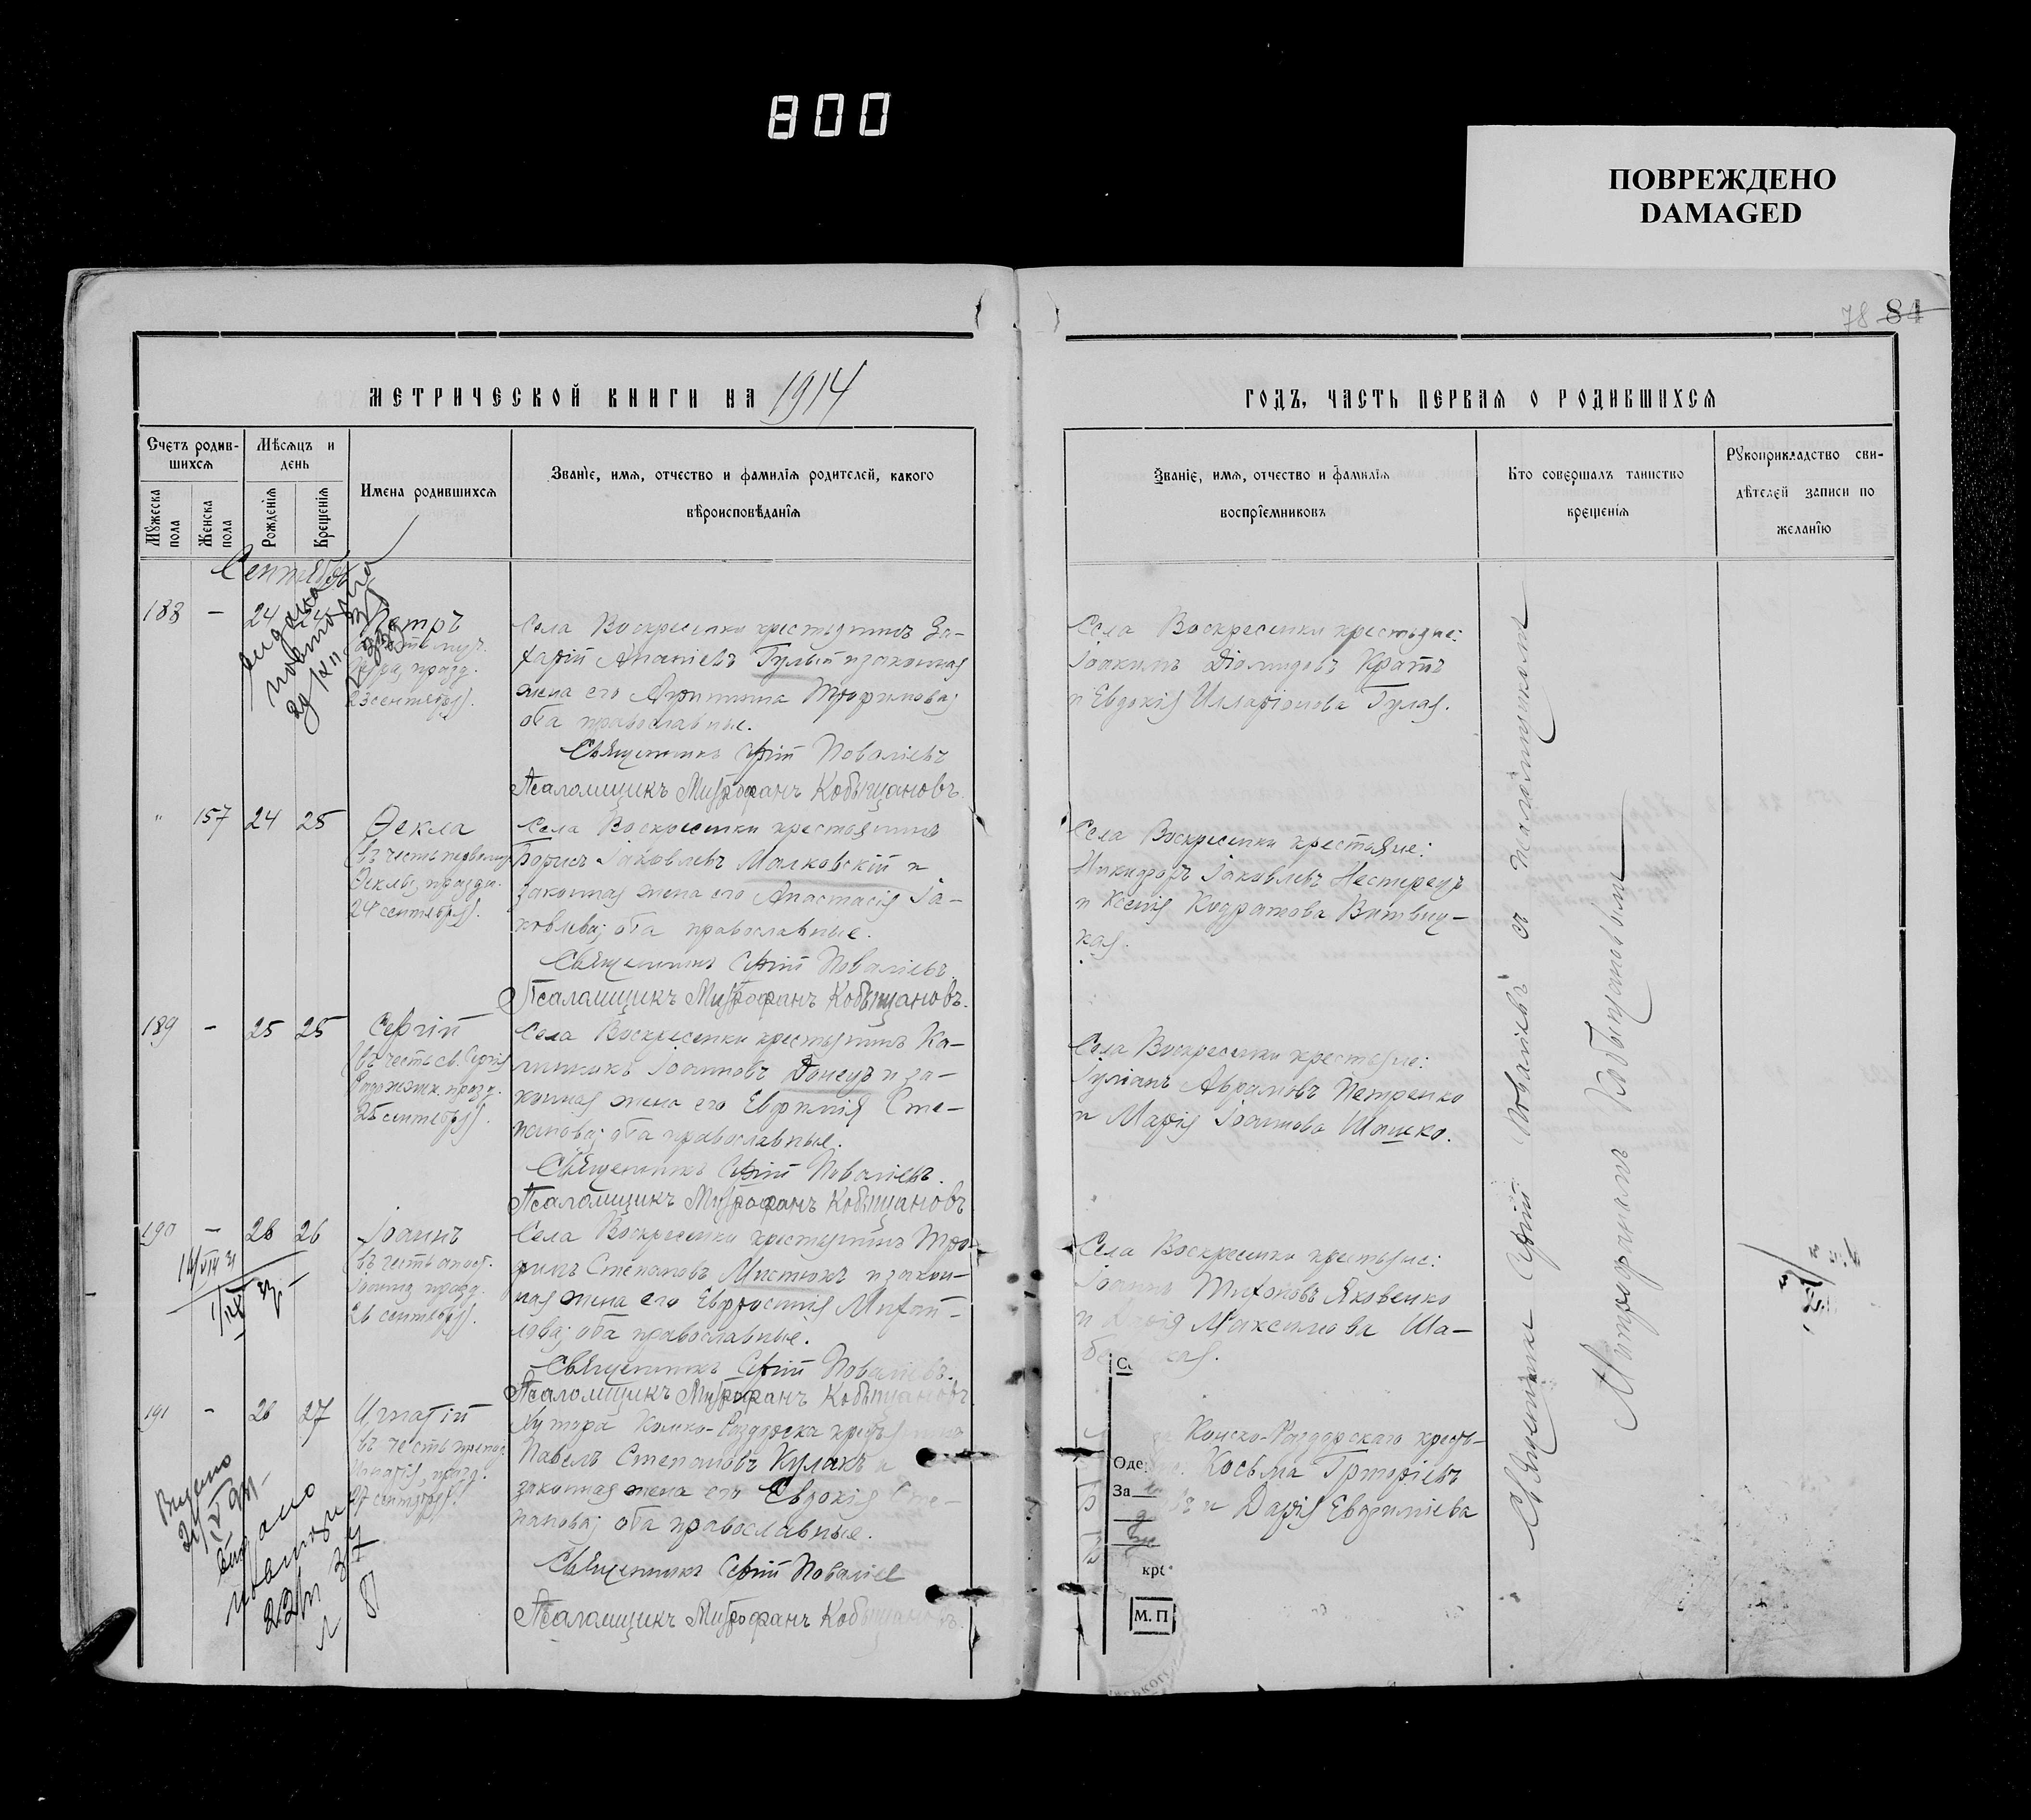 800
ПОВРЕЖДЕНО
DAMAGED
78 84
МЕТРИЧЕСКОЙ КНИГИ НА 1914
ГОДЪ, ЧАСТЬ ПЕРВАЯ О РОДИВШИХСЯ
Счетъ родив-
шихся
Мужеска пола
Женска пола
Мѣсяцъ и
день
Рожденія
Крещенія
Имена родившихся
Званіе, имя, отчество и фамилія родителей, какого
вѣроисповѣданія
Званіе, имя, отчество и фамилія
воспріемниковъ
Кто совершалъ таинство
крещенія
Рукоприкладство сви-
дѣтелей записи по
желанію
Сентябрь
188 - 24 24 Петръ
23 сентября).
Села Воскресенки крестьянинъ За-
харій Ананіевъ Гулый и законная
жена его Трофимова;
оба православные.
Священникъ Сергій Поваліевъ
Псаломщикъ Митрофанъ Кобыщановъ.
Села Воскресенки крестьяне:
Іоакимъ Діомидовъ Кратъ
и Евдокія Илларіонова Гулая.
" 157 24 25 Ѳекла
(въ честь первомуч.
Ѳеклы, праздн.
24 сентября).
Села Воскресенки крестьянинъ
Борисъ Іаковлевъ Малковскій и
законная жена его Анастасія Іа-
ковлева; оба православные.
Священникъ Сергій Поваліевъ.
Псаломщикъ Митрофанъ Кобыщановъ.
Села Воскресенки крестьяне:
Никифоръ Іаковлевъ Нестерецъ
и Ксенія Кодратова Витвиц-
кая.
189 - 25 25 Сергій
(въ честь св. Сергія
Радонежск. празд.
25 сентября).
Села Воскресенки крестьянинъ Ка-
линникъ Іоанновъ Донецъ и за-
конная жена его Евфимія Сте-
панова; оба православные.
Священникъ Сергій Поваліевъ.
Псаломщикъ Митрофанъ Кобыщановъ
Села Воскресенки крестьяне:
Іуліанъ Авраамовъ Петренко
и Марія Іоаннова Шашко.
190 - 26 26 Іоаннъ
(въ честь апост.
Іоанна празд.
26 сентября).
Села Воскресенки крестьянинъ Тро-
фимъ Степановъ Мистюкъ и закон-
ная жена его Евфросинія Михай-
лова; оба православные.
Священникъ Сергій Поваліевъ.
Псаломщикъ Митрофанъ Кобыщановъ
Села Воскресенки крестьяне:
Іоаннъ Тихоновъ Яковенко
и Максимова Ша-
191 - 26 27 Игнатій
(въ честь препод.
Игнатія, празд.
27 сентября).
Хутора Конско-Раздорска
Павелъ Степановъ Кулакъ и
законная жена его Евдокія Сте-
панова; оба православные.
Священникъ Сергій Поваліев
Псаломщикъ Митрофанъ Кобыщановъ.
Конско-Раздорскаго кресть-
Косьма Григоріевъ
и Дарія Евфиміева
Священникъ Сергій Поваліевъ съ псаломщикомъ
Митрофаномъ Кобыщановымъ
Оде
За
кре
М. П